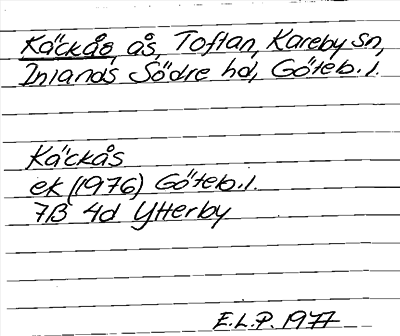 Käckås, ås, Toflan, Kareby sn,
Inlands Södre hd, Göteb. l.
Käckås
ek (1976) Göteb. l.
7B 4d Ytterby
E.L.P. 1977